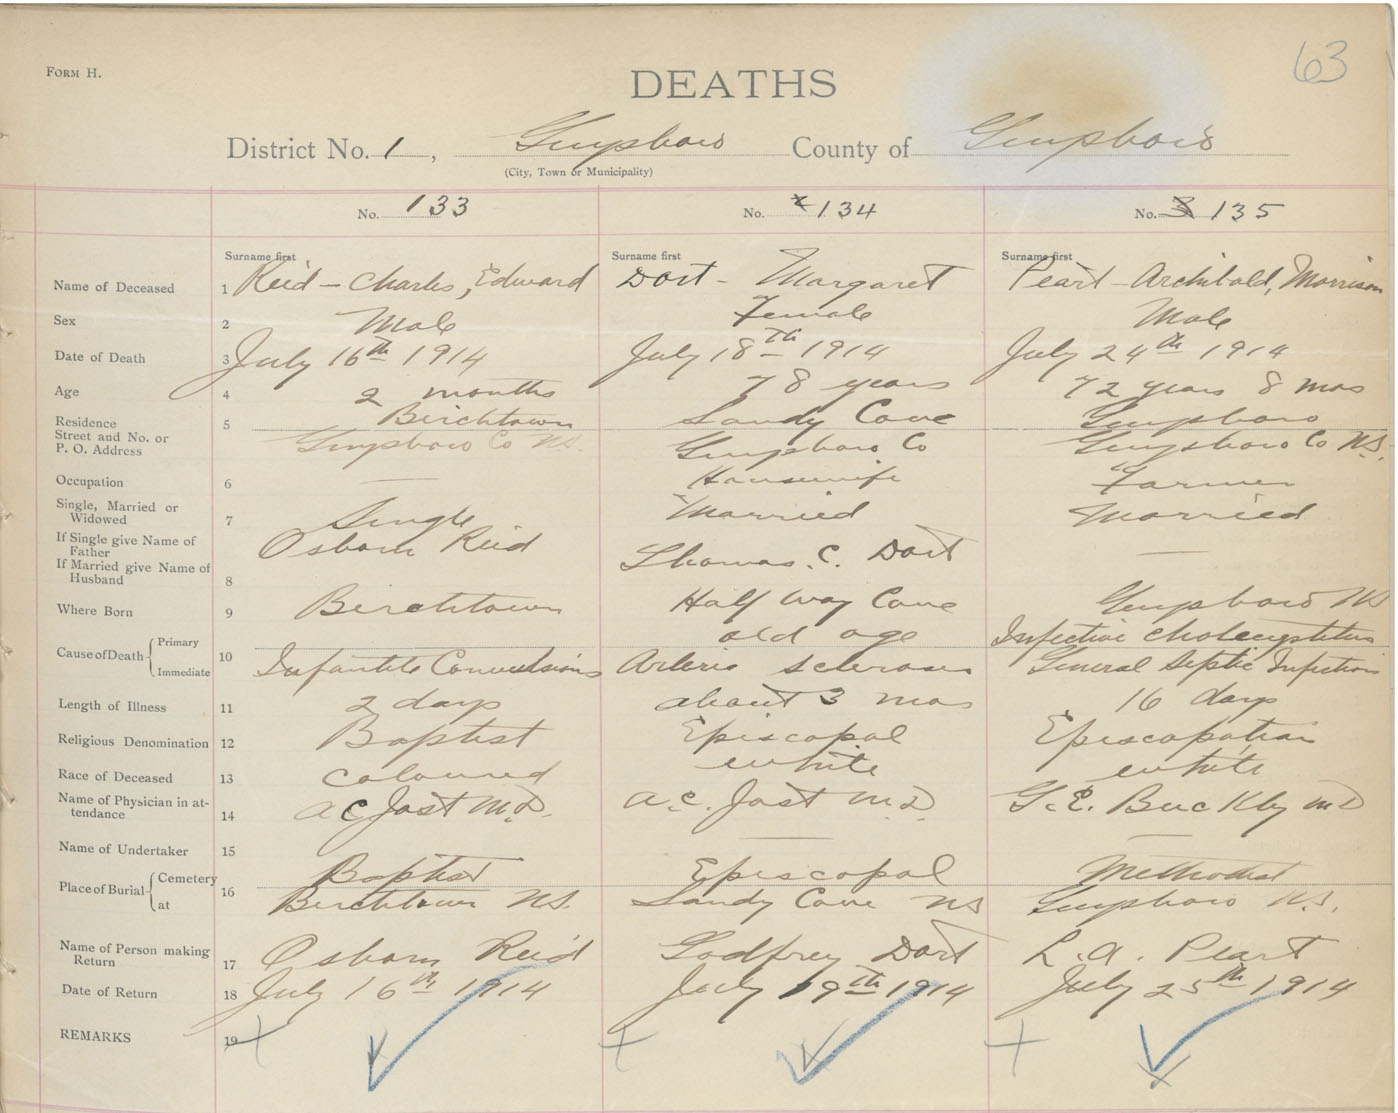 63
FORM H.
DEATHS
District No. 1, Guysboro County of Guysboro
(City, Town or Municipality)
No. 133 No. 134 No. 3 135
Surname first Surname first Surname first
Name of Deceased 1 Reid - Charles, Edward Dort - Margaret Peart - Archibald, Morrison
Sex 2 Male Female Male
Date of Death 3 July 16th 1914 July 18th 1914 July 24th 1914
Age 4 2 months 78 years 72 years 8 mos
Residence 5 Birchtown Sandy Cove Guysboro
Street and No. or
P. O. Address Guysboro Co N.S. Guysboro Co Guysboro Co N.S.
Occupation 6 — Housewife Farmer
Single, Married or
Widowed 7 Single Married Married
If Single give Name of
Father Osborn Reid Thomas. C. Dort —
If Married give Name of
Husband 8
Where Born 9 Birchtown Half Way Cove Guysboro NS
Cause of Death { Primary 10 old age Infective Cholecystitis
Immediate Infantile Convulsions Arterio sclerosis General Septic Infection
Length of Illness 11 2 days about 3 mos 16 days
Religious Denomination 12 Baptist Episcopal Episcopalian
Race of Deceased 13 coloured white white
Name of Physician in at-
tendance 14 A C Jost M.D. A. C. Jost M.D G. E. Buckley MD
Name of Undertaker 15 — —
Place of Burial { Cemetery 16 Baptist Episcopal Methodist
at Birchtown N.S. Sandy Cove NS Guysboro N.S.
Name of Person making
Return 17 Osborn Reid Godfrey Dort L. A. Peart
Date of Return 18 July 16th 1914 July 19th 1914 July 25th 1914
REMARKS 19